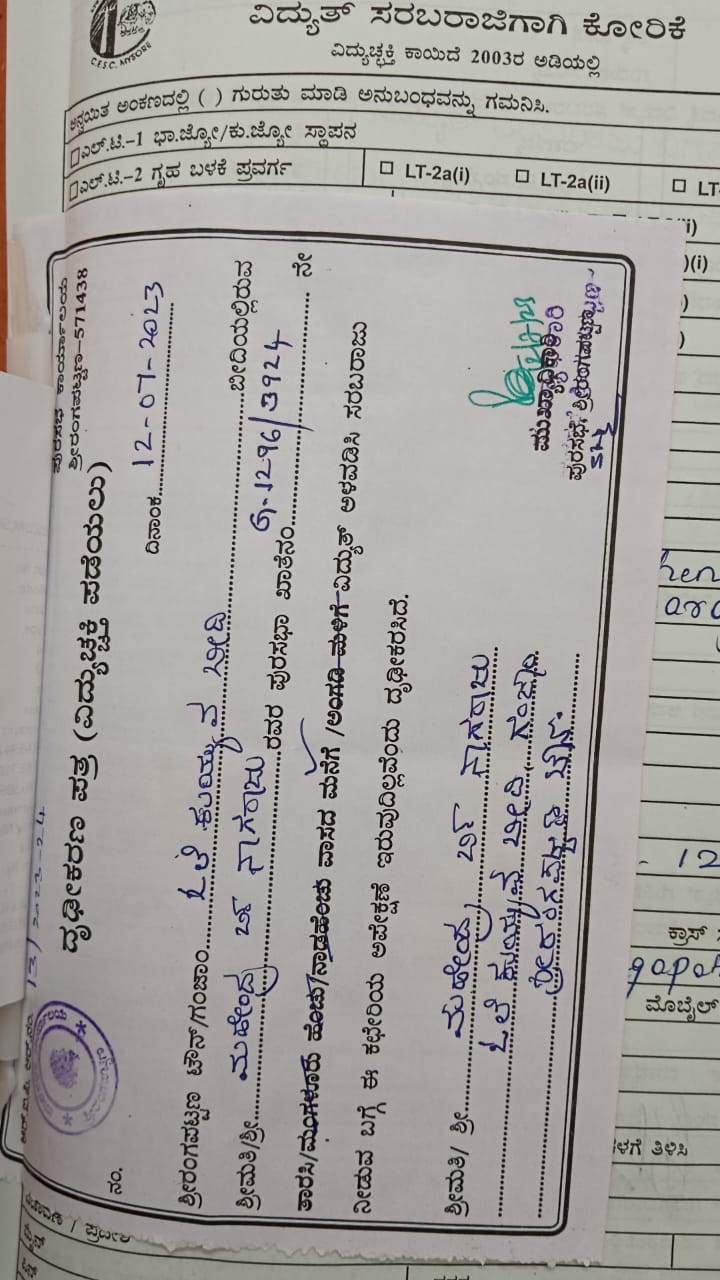 C.E.S.C. MYSORE
ವಿದ್ಯುತ್ ಸರಬರಾಜಿಗಾಗಿ ಕೋರಿಕೆ
ವಿದ್ಯುಚ್ಛಕ್ತಿ ಕಾಯಿದೆ 2003ರ ಅಡಿಯಲ್ಲಿ
ಅನ್ವಯಿತ ಅಂಕಣದಲ್ಲಿ ( ) ಗುರುತು ಮಾಡಿ ಅನುಬಂಧವನ್ನು ಗಮನಿಸಿ.
ಎಲ್.ಟಿ.-1 ಭಾ.ಜ್ಯೋ/ಕು.ಜ್ಯೋ ಸ್ಥಾಪನ
ಎಲ್.ಟಿ.-2 ಗೃಹ ಬಳಕೆ ಪ್ರವರ್ಗ LT-2a(i) LT-2a(ii) LT-
ಪುರಸಭೆ ಕಾರ್ಯಾಲಯ
ಶ್ರೀರಂಗಪಟ್ಟಣ-571438
13/2023-24
ದೃಢೀಕರಣ ಪತ್ರ (ವಿದ್ಯುಚ್ಛಕ್ತಿ ಪಡೆಯಲು)
ನಂ. ದಿನಾಂಕ 12-07-2023
ಶ್ರೀರಂಗಪಟ್ಟಣ ಟೌನ್/ಗಂಜಾಂ ಬೀದಿ ಬೀದಿಯಲ್ಲಿರುವ
ಶ್ರೀಮತಿ/ಶ್ರೀ ಮಹೇಂದ್ರ ಬಿನ್ ನಾಗರಾಜು ರವರ ಪುರಸಭಾ ಖಾತೆನಂ. 1296/3924 ನೇ
ತಾರಸಿ/ಮಂಗಳೂರು ಹೆಂಚು/ನಾಡಹೆಂಚು ವಾಸದ ಮನೆಗೆ /ಅಂಗಡಿ ಮಳಿಗೆ ವಿದ್ಯುತ್ ಅಳವಡಿಸಿ ಸರಬರಾಜು
ನೀಡುವ ಬಗ್ಗೆ ಈ ಕಛೇರಿಯ ಅಪೇಕ್ಷಣೆ ಇರುವುದಿಲ್ಲವೆಂದು ದೃಢೀಕರಿಸಿದೆ.
ಶ್ರೀಮತಿ/ ಶ್ರೀ ಮಹೇಂದ್ರ ಬಿನ್ ನಾಗರಾಜು
ಬೀದಿ, ಗಂಜಾಂ
ಶ್ರೀರಂಗಪಟ್ಟಣ ಟೌನ್.
ಮುಖ್ಯಾಧಿಕಾರಿ
ಪುರಸಭೆ, ಶ್ರೀರಂಗಪಟ್ಟಣ
- 12
ಕ್ರಾಸ್
ಮೊಬೈಲ್
ಳಗೆ ತಿಳಿಸಿ